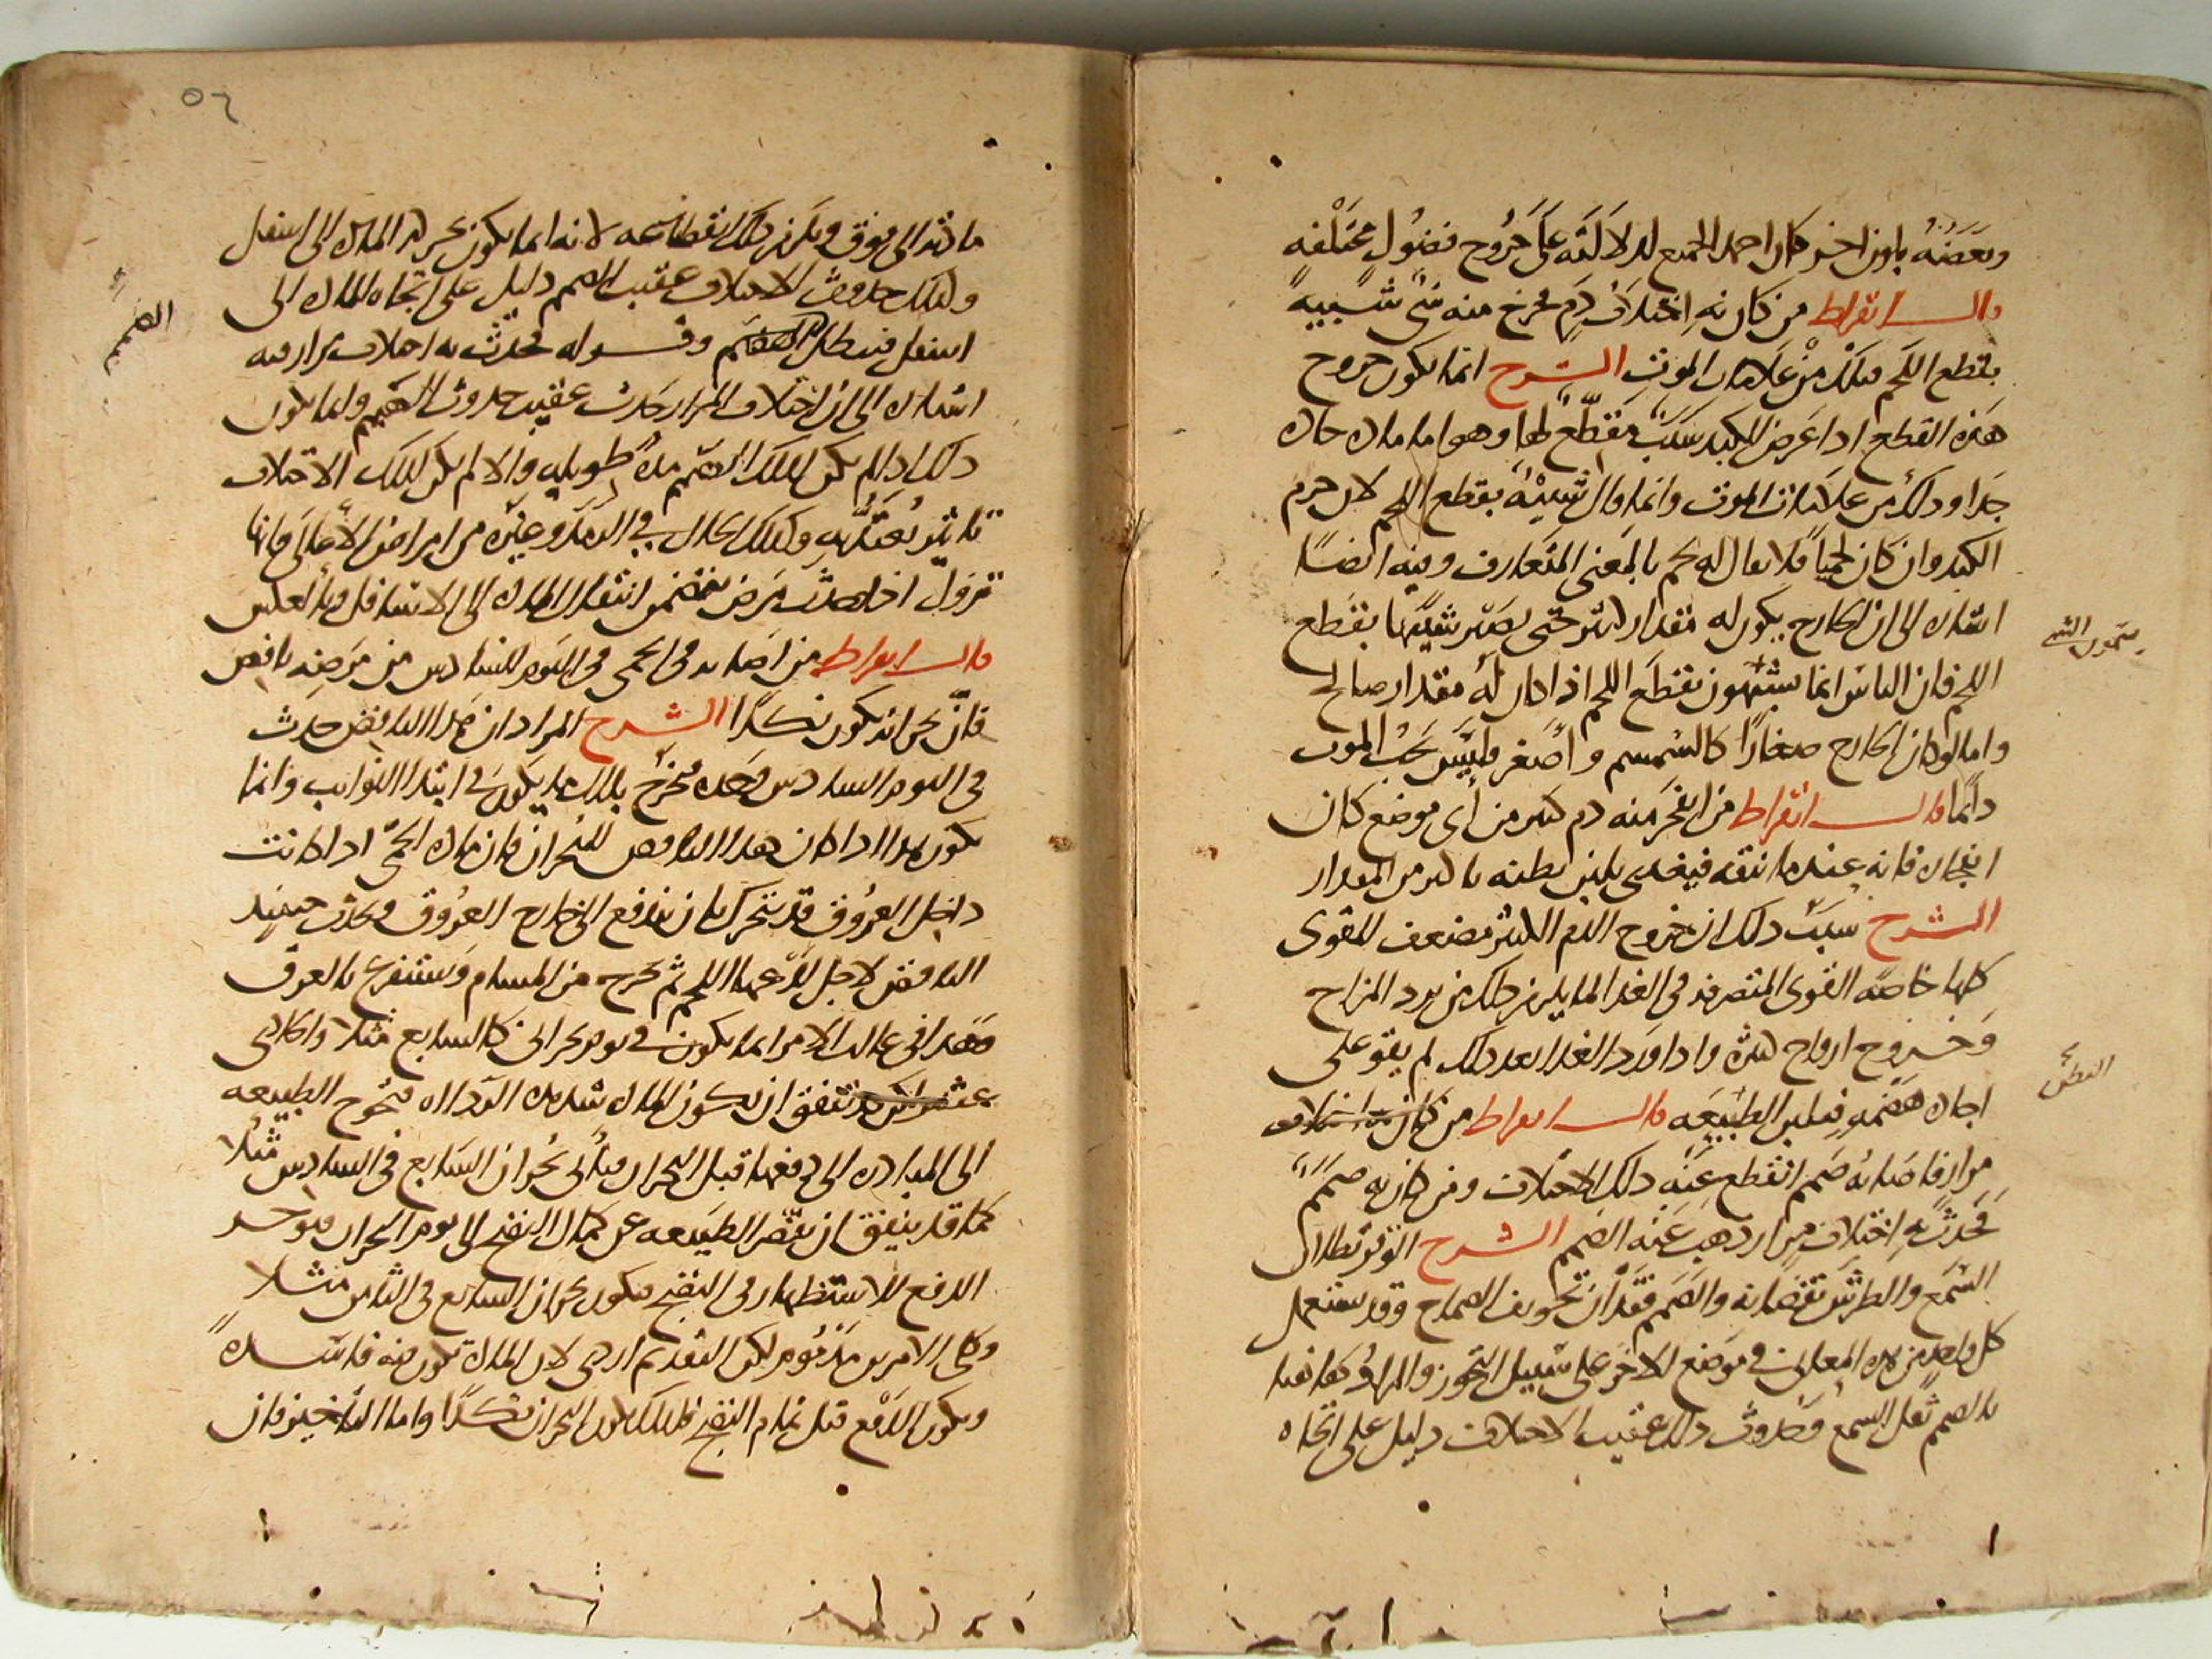 وبعضه باون اخر كان احمد الجميع لدلالته على خروج فضول مختلفه
قال ابقراط من كان به اختلاف دم فخرج منه شى شبيه
بقطع اللحم فتلك من علامات الموت الشرح انما يكون خروج
هذه القطع اذا عرض للكبد سبب مقطع لها وهو اما ماده حاده
جدا وذلك من علامات الموت وانما قال شبيه بقطع اللحم لان جرم
الكبد وان كان لحميا فلا يقال له لحم بالمعنى المتعارف وفيه ايضا
اشاره الى ان الخارج يكون له مقدار كثير حتى يصير شبيها بقطع
اللحم فان الناس انما يشبهون بقطع اللحم اذا كان له مقدار صالح
واما لو كان الخارج صغارا كالسمسم واصغر فليس يجب الموت
دائما قال ابقراط من انفجر منه دم كثير من اى موضع كان
انفجاره فانه عندما ينقه فيغدى يلين بطنه باكثر من المقدار
الشرح سبب ذلك ان خروج الدم الكثير مضعف للقوى
كلها خاصه القوى المتصرفه فى الغذا لما يلزم ذلك من برد المزاج
وخروج ارواح كثيره واذا ورد الغذا بعد ذلك لم يقو على
اجاده هضمه فيلين الطبيعه قال ابقراط من كان به اختلاف
مرار فاصابه صمم انقطع عنه ذلك الاختلاف ومن كان به صمم
فحدث به اختلاف مرار ذهب عنه الصمم الشرح الوقر بطلان
السمع والطرش نقصانه والصمم فقدان تجويف الصماخ وقد يستعمل
كل واحد من هذه المعانى فى موضع الاخر على سبيل التجوز والمراد هاهنا
بالصمم ثقل السمع وحدوث ذلك عقيب الاختلاف دليل على اتجاه
البطن
٥٦
مادته الى فوق ويلزم ذلك انقطاعه لانه انما يكون بحركه الماده الى اسفل
وكذلك حدوث الاختلاف عقيب الصمم دليل على اتجاه الماده الى
اسفل فيبطل الصمم وقوله فحدث به اختلاف مرار فيه
اشاره الى ان اختلاف المرار حدث عقيب حدوث الصمم وانما يكون
ذلك اذا لم يكن لذلك الصمم مده طويله والا لم يكن لذلك الاختلاف
تاثير يعتد به وكذلك الحال فى الرمد وغيره من امراض الاعالى فانها
تزول اذا حدث مرض يتضمن انتقال الماده الى الاسافل وبالعكس
قال ابقراط من اصابه فى الحمى فى اليوم السادس من مرضه نافض
فان بحرانه يكون نكدا الشرح المراد ان هذا النافض حدث
فى اليوم السادس وحده فخرج بذلك ما يكون فى ابتدا النوايب وانما
يكون هذا اذا كان هذا النافض للبحران فان ماده الحمى اذا كانت
داخل العروق قد تتحرك بان تندفع الى خارج العروق ويحدث حينيذ
النافض لاجل لذعها اللحم ثم تخرج من المسام وتستفرغ بالعرق
وهذا فى غالب الامر انما يكون فى يوم بحرانى كالسابع مثلا والحادى
عشر لكن قد يتفق ان يكون الماده شديده الرداه فتحوج الطبيعه
الى المبادره الى دفعها قبل البحران فياتى بحران السابع فى السادس مثلا
كما قد يتفق ان تقصر الطبيعه عن كمال النضج الى يوم البحران فتوخر
الدفع للاستظهار فى النضج فيكون بحران السابع فى الثامن مثلا
وكلى الامرين مذموم لكن التقديم اردى لان الماده تكون فيه فاسده
ويكون الدفع قبل تمام النضج فلذلك يكون البحران نكدا واما التاخير فان